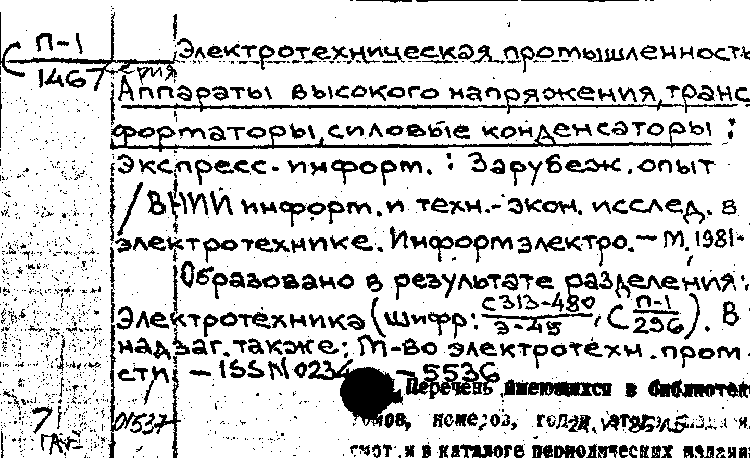 С П-1/1467
Электротехническая промышленность
серия
Аппараты высокого напряжения, транс
форматоры, силовые конденсаторы :
экспресс-информ. : Зарубеж. опыт
/ ВНИИ информ. и техн.-экон. исслед. в
электротехнике. Информэлектро. — М, 1981-
Образовано в результате разделения:
Электротехника (шифр: С313-480/Э-45, С П-1/256). В
надзаг. также: М-во электротехн. пром
сти — ISSN 0234-5536
Перечень имеющихся в библиотек
7
01537
томов, номеров, годы
смотри в каталоге периодических издани